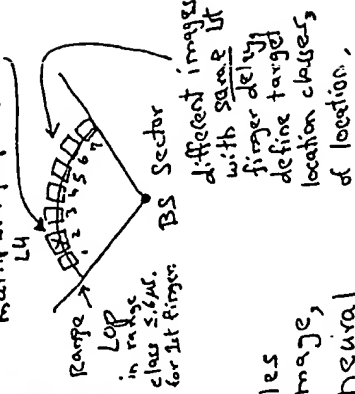 L4
Range
LOP
in range
class 5.6 µs.
for 1st finger.
1 2 3 4 5 6 7
BS Sector
different images
with same 1st
finger delay
define target
location classes,
of location,
les
mage,
neural